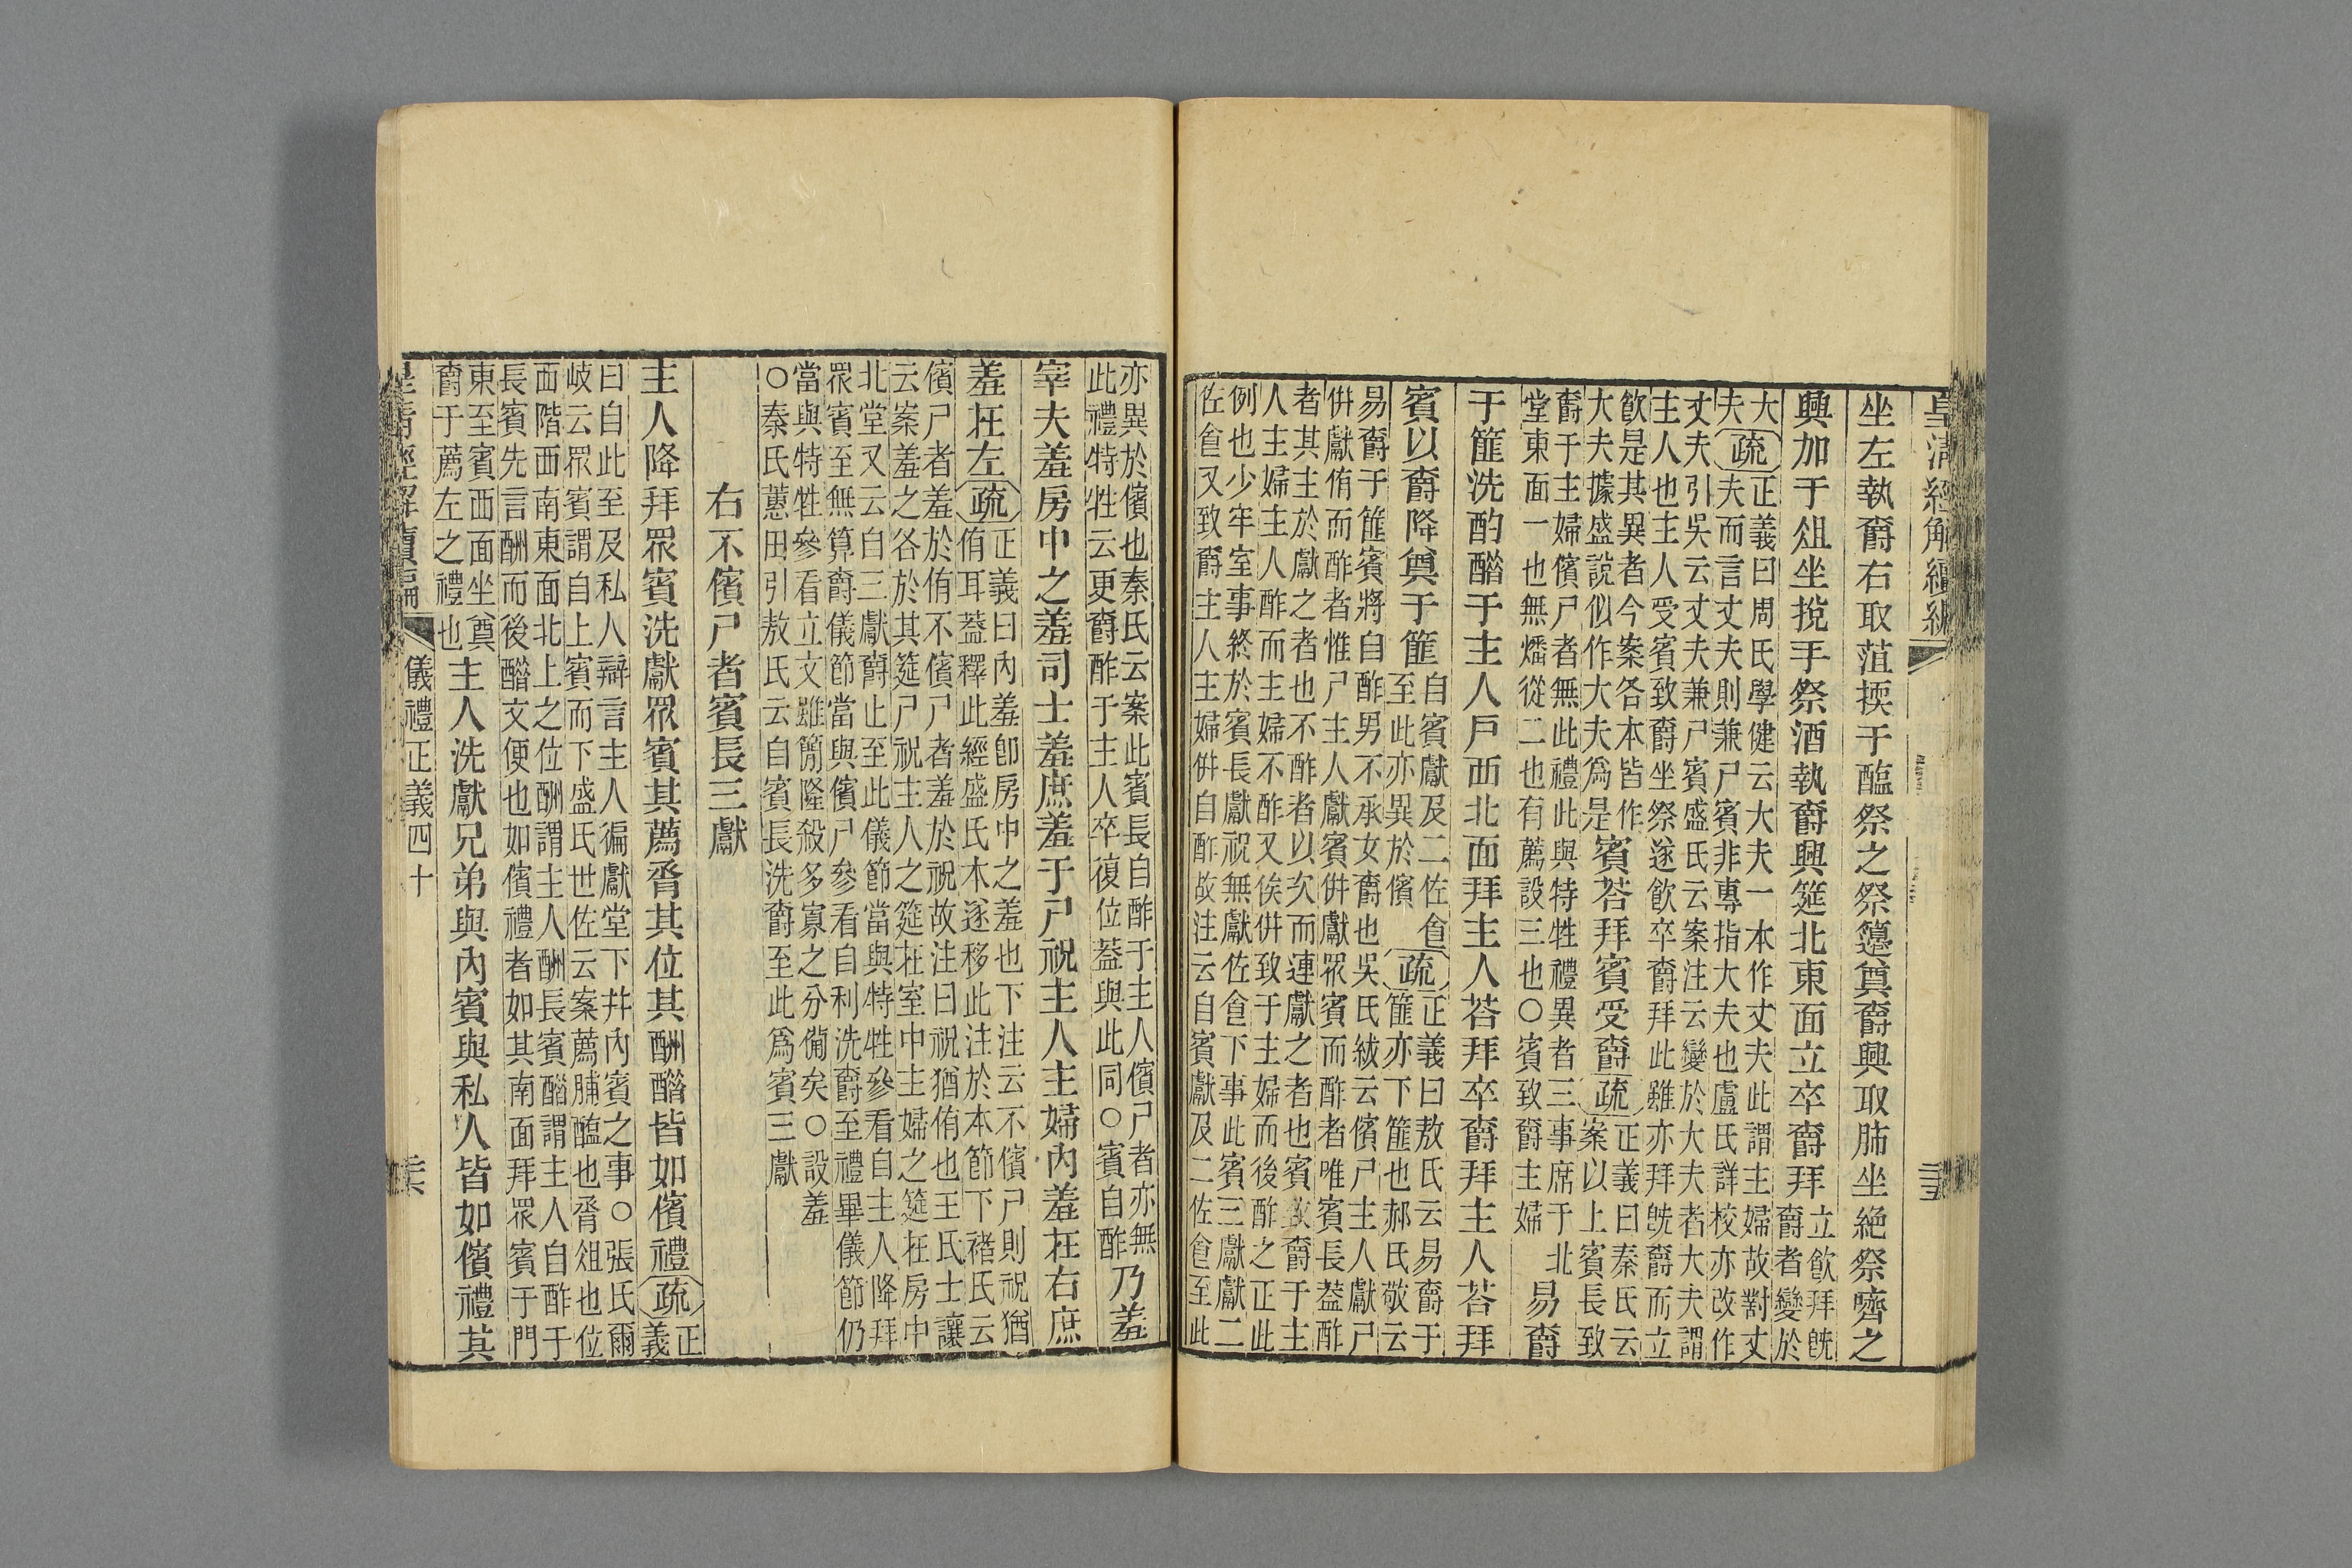 皇清經解續編
坐左執爵右取菹㨎于醢祭之祭籩奠爵興取肺坐絕祭嚌之
興加于俎坐挩手祭酒執爵興筵北東面立卒爵拜
立飲拜旣
爵者變於
大
夫
疏
正義曰周氏學健云大夫一本作丈夫此謂主婦故對丈
夫而言丈夫則兼尸賓非專指大夫也盧氏詳校亦改作
丈夫引吳云丈夫兼尸賓盛氏云案注云變於大夫者大夫謂
主人也主人受賓致爵坐祭遂飲卒爵拜此雖亦拜旣爵而立
飲是其異者今案各本皆作
大夫據盛說似作大夫爲是
賓荅拜賓受爵
疏
正義曰秦氏云
案以上賓長致
爵于主婦儐尸者無此禮此與特牲禮異者三事席于北
堂東面一也無燔從二也有薦設三也○賓致爵主婦
易爵
于篚洗酌醋于主人戶西北面拜主人荅拜卒爵拜主人荅拜
賓以爵降奠于篚
自賓獻及二佐食
至此亦異於儐
疏
正義曰敖氏云易爵于
篚亦下篚也郝氏敬云
易爵于篚賓將自酢男不承女爵也吳氏紱云儐尸主人獻尸
倂獻侑而酢者惟尸主人獻賓倂獻眾賓而酢者唯賓長葢酢
者其主於獻之者也不酢者以次而連獻之者也賓致爵于主
人主婦主人酢而主婦不酢又俟倂致于主婦而後酢之正此
例也少牢室事終於賓長獻祝無獻佐食下事此賓三獻獻二
佐食又致爵主人主婦倂自酢故注云自賓獻及二佐食至此
亦異於儐也秦氏云案此賓長自酢于主人儐尸者亦無
此禮特牲云更爵酢于主人卒復位葢與此同○賓自酢
乃羞
宰夫羞房中之羞司士羞庶羞于尸祝主人主婦內羞在右庶
羞在左
疏
正義曰內羞卽房中之羞也下注云不儐尸則祝猶
侑耳葢釋此經盛氏本遂移此注於本節下褚氏云
儐尸者羞於侑不儐尸者羞於祝故注曰祝猶侑也王氏士讓
云案羞之各於其筵尸祝主人之筵在室中主婦之筵在房中
北堂又云自三獻爵止至此儀節當與特牲參看自主人降拜
眾賓至無算爵儀節當與儐尸參看自利洗爵至禮畢儀節仍
當與特牲參看立文雖簡隆殺多寡之分備矣○設羞
○秦氏蕙田引敖氏云自賓長洗爵至此爲賓三獻
右不儐尸者賓長三獻
主人降拜眾賓洗獻眾賓其薦脀其位其酬醋皆如儐禮
疏
正
義
曰自此至及私人辯言主人徧獻堂下幷內賓之事○張氏爾
岐云眾賓謂自上賓而下盛氏世佐云案薦脯醢也脀俎也位
西階西南東面北上之位酬謂主人酬長賓醋謂主人自酢于
長賓先言酬而後醋文便也如儐禮者如其南面拜眾賓于門
東至賓西面坐奠
爵于薦左之禮也
主人洗獻兄弟與內賓與私人皆如儐禮其
皇清經解續編
儀禮正義四十